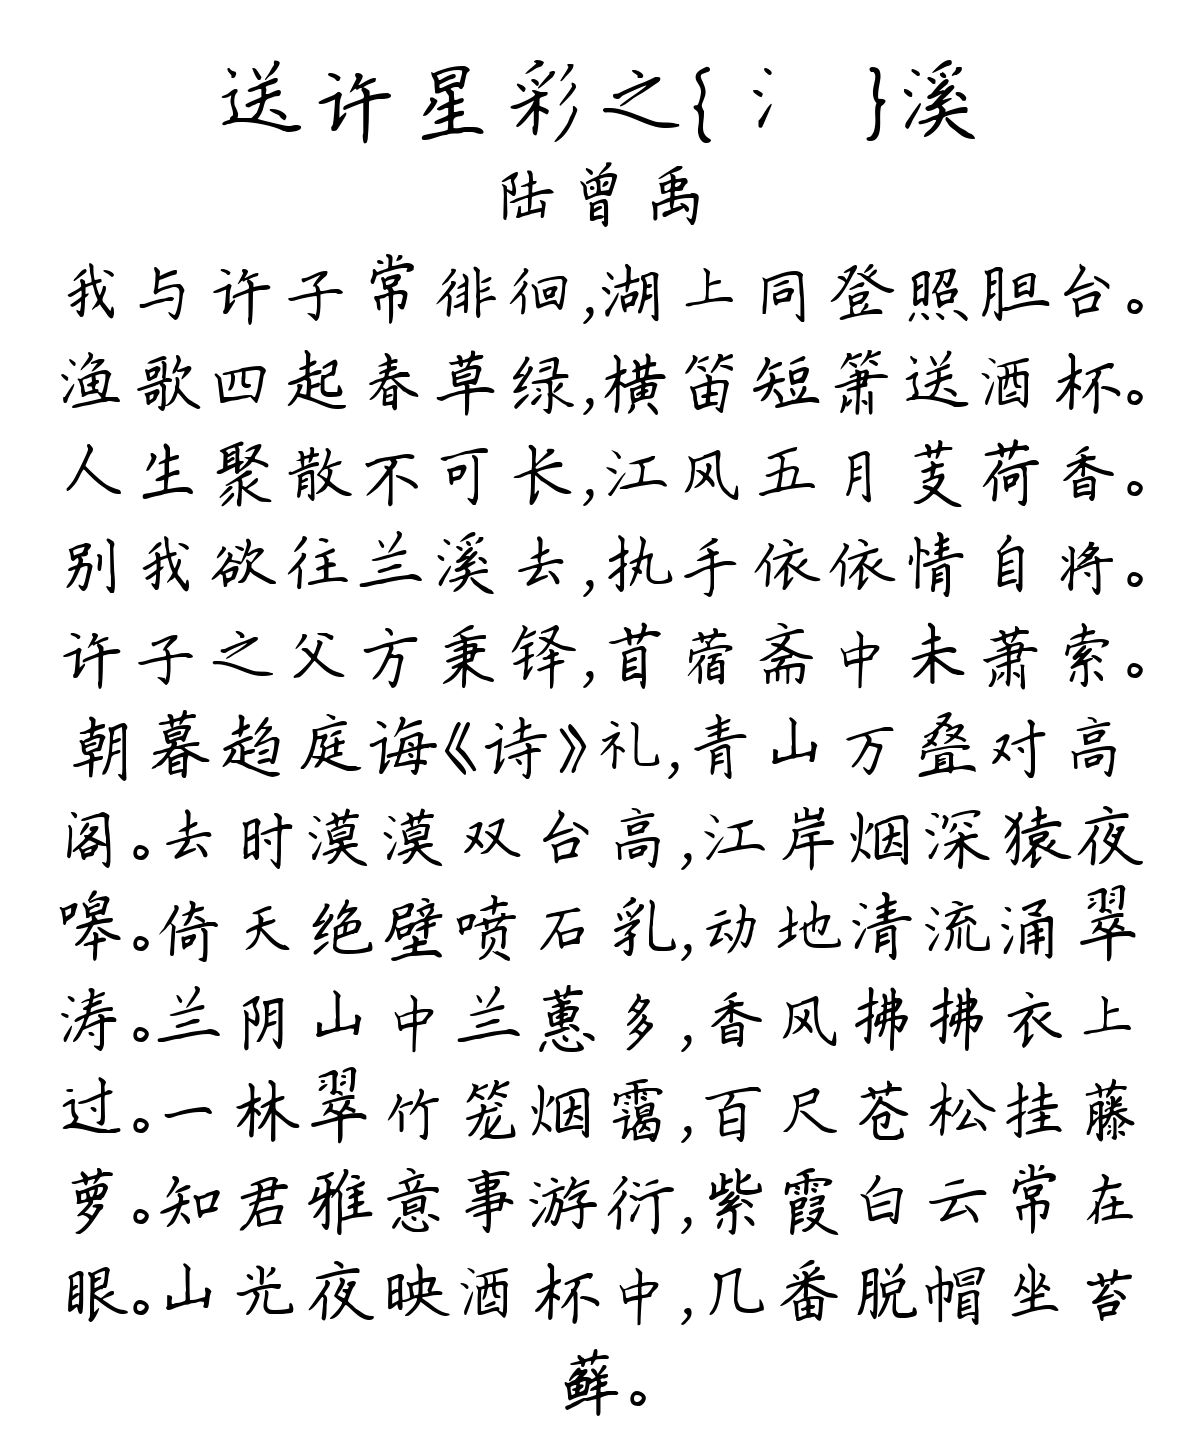 送许星彩之{氵 }溪
陆曾禹
我与许子常徘徊,湖上同登照胆台。
渔歌四起春草绿,横笛短箫送酒杯。
人生聚散不可长,江风五月芰荷香。
别我欲往兰溪去,执手依依情自将。
许子之父方秉铎,苜蓿斋中未萧索。
朝暮趋庭诲《诗》礼,青山万叠对高
阁。去时漠漠双台高,江岸烟深猿夜
嗥。倚天绝壁喷石乳,动地清流涌翠
涛。兰阴山中兰蕙多,香风拂拂衣上
过。一林翠竹笼烟霭,百尺苍松挂藤
萝。知君雅意事游衍,紫霞白云常在
眼。山光夜映酒杯中,几番脱帽坐苔
藓。